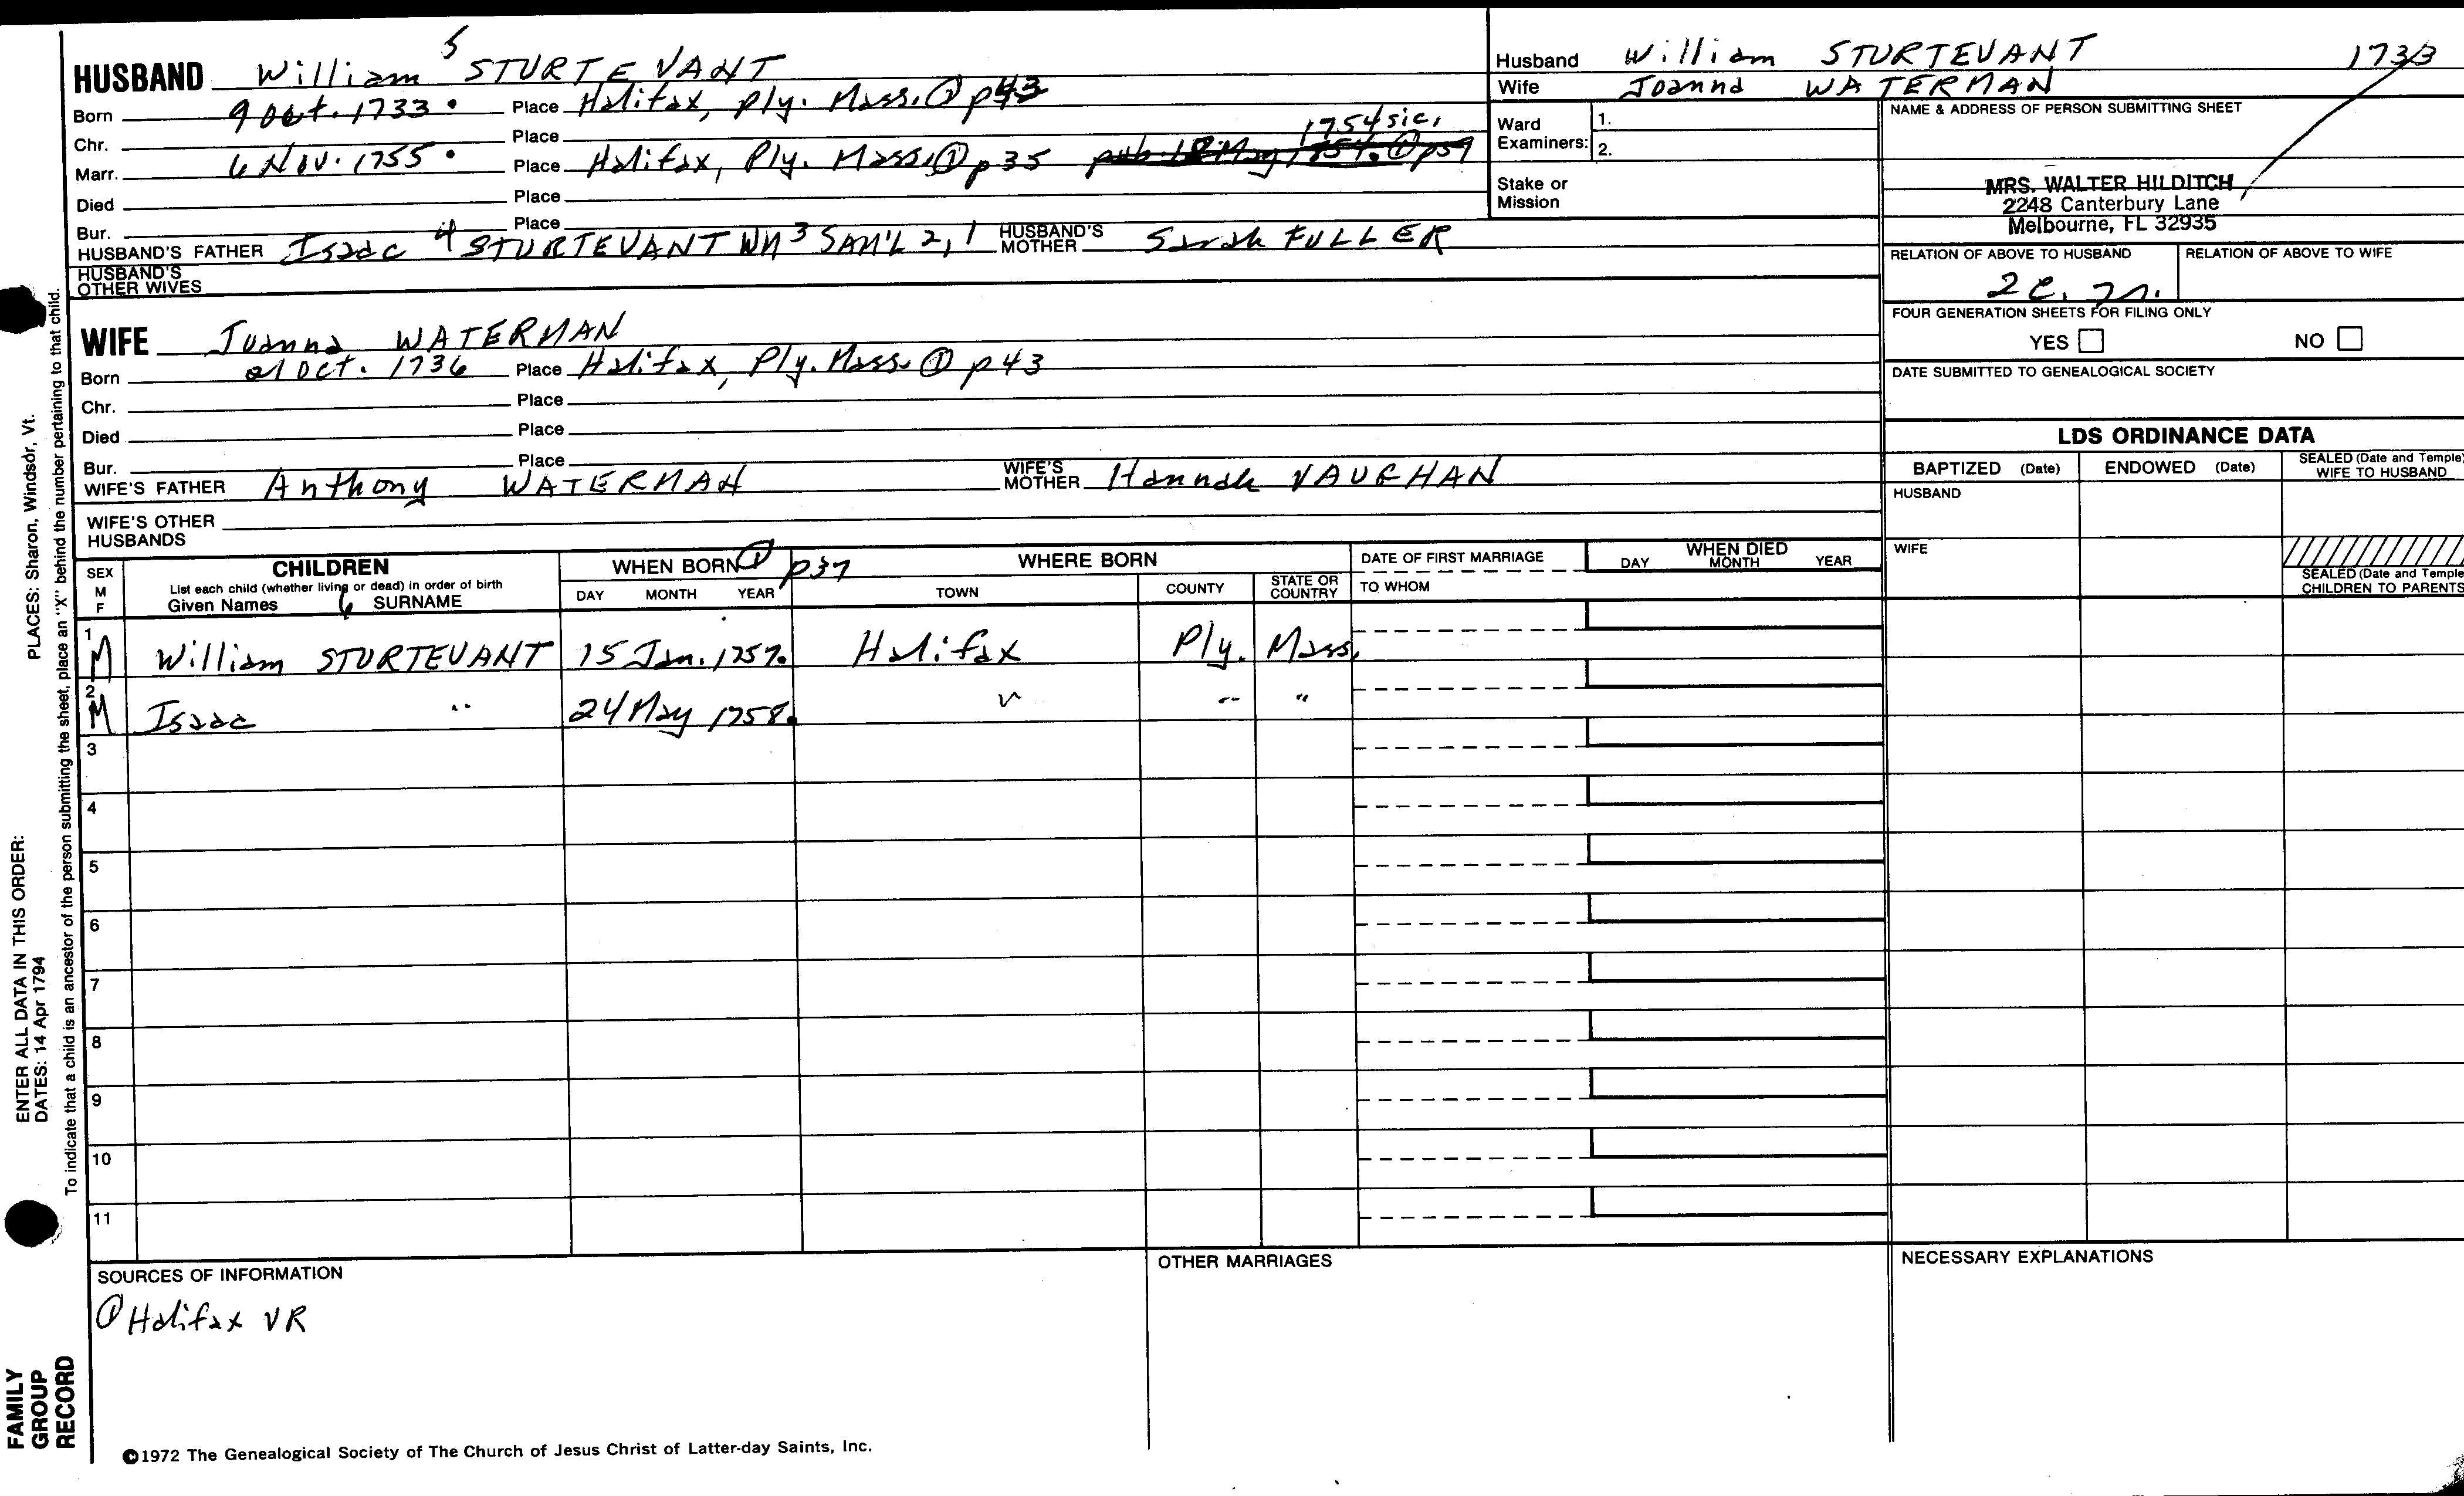 HUSBAND William 5 STURTEVANT
Born 9 Oct. 1733. Place Halifax, Ply. Mass. ① p43
Chr. Place 1754 sic,
Marr. 6 Nov. 1755. Place Halifax, Ply. Mass. ① p35 pub. 18 May 1754. ① p59
Died Place
Bur. Place
HUSBAND'S FATHER Isaac 4 STURTEVANT Wm 3 SAM'L 2, 1 HUSBAND'S MOTHER Sarah FULLER
HUSBAND'S OTHER WIVES
WIFE Joanna WATERMAN
Born 21 Oct. 1736 Place Halifax, Ply. Mass. ① p43
Chr. Place
Died Place
Bur. Place
WIFE'S FATHER Anthony WATERMAN WIFE'S MOTHER Hannah VAUGHAN
WIFE'S OTHER HUSBANDS
Husband William STURTEVANT 1733
Wife Joanna WATERMAN
Ward Examiners: 1.
2.
Stake or Mission
NAME & ADDRESS OF PERSON SUBMITTING SHEET
MRS. WALTER HILDITCH
2248 Canterbury Lane
Melbourne, FL 32935
RELATION OF ABOVE TO HUSBAND RELATION OF ABOVE TO WIFE
2c.
FOUR GENERATION SHEETS FOR FILING ONLY
YES NO
DATE SUBMITTED TO GENEALOGICAL SOCIETY
LDS ORDINANCE DATA
BAPTIZED (Date) ENDOWED (Date) SEALED (Date and Temple) WIFE TO HUSBAND
HUSBAND
WIFE
SEALED (Date and Temple) CHILDREN TO PARENTS
SEX M F CHILDREN List each child (whether living or dead) in order of birth Given Names 6 SURNAME
WHEN BORN ① p37 DAY MONTH YEAR
WHERE BORN TOWN COUNTY STATE OR COUNTRY
DATE OF FIRST MARRIAGE TO WHOM
WHEN DIED DAY MONTH YEAR
1 M William STURTEVANT 15 Jan. 1757. Halifax Ply. Mass.
2 M Isaac " 24 May 1758. " " "
3
4
5
6
7
8
9
10
11
SOURCES OF INFORMATION
① Halifax VR
OTHER MARRIAGES
NECESSARY EXPLANATIONS
©1972 The Genealogical Society of The Church of Jesus Christ of Latter-day Saints, Inc.
FAMILY GROUP RECORD
ENTER ALL DATA IN THIS ORDER:
DATES: 14 Apr 1794
PLACES: Sharon, Windsor, Vt.
To indicate that a child is an ancestor of the person submitting the sheet, place an "X" behind the number pertaining to that child.